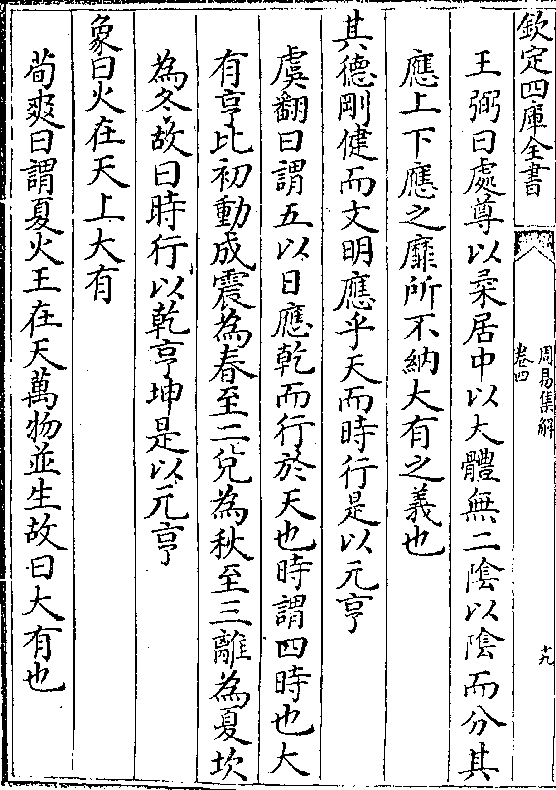 欽定四庫全書
周易集解
卷四
十九
王弼曰處尊以柔居中以大體無二陰以陰而分其
應上下應之靡所不納大有之義也
其德剛健而文明應乎天而時行是以元亨
虞翻曰謂五以日應乾而行於天也時謂四時也大
有亨比初動成震為春至二兌為秋至三離為夏坎
為冬故曰時行以乾亨坤是以元亨
象曰火在天上大有
荀爽曰謂夏火王在天萬物並生故曰大有也